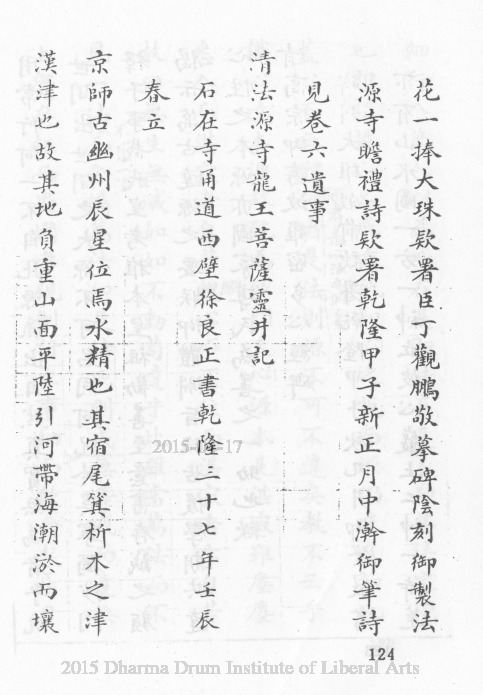 花一捧大珠欵署臣丁觀鵬敬摹碑陰刻御製法
源寺瞻禮詩欵署乾隆甲子新正月中澣御筆詩
見卷六遺事
清法源寺龍王菩薩靈井記
石在寺甬道西壁徐良正書乾隆二十七年壬辰
春立
京師古幽州辰星位焉水精也其宿尾箕析木之津
漢津也故其地負重山面平陸引河帶海潮淤而壤
124
2015 Dharma Drum Institute of Liberal Arts